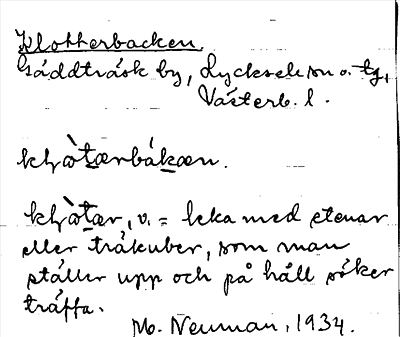 Klotterbacken.
Gäddträsk by, Lycksele sn o. tg,
Västerb. l.
kḷò̀tærbákæn.
kḷò̀tær, v. = leka med stenar
eller träkuber, som man
ställer upp och på håll söker
träffa.
M. Neuman, 1934.